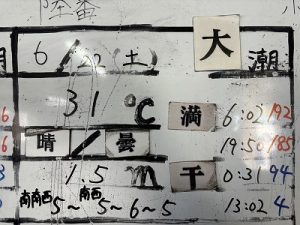 陸番
6/22(土) 大潮
31℃ 満 6:02 192
晴/曇 19:50 185
1.5m 干 0:31 94
南南西5~南西5~6~5 13:02 4